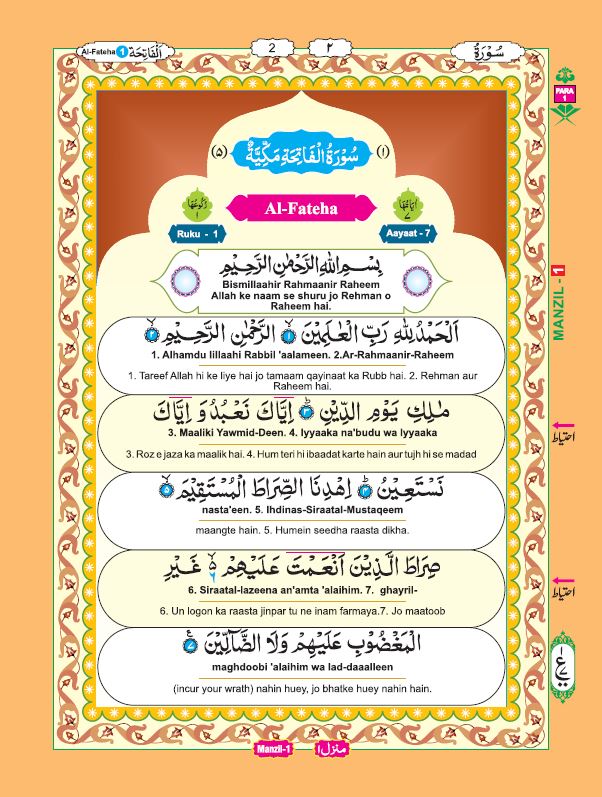 Al-Fateha 1 اَلْفَاتِحَة
2
۲
سُوْرَة
PARA
1
(۵) سُوْرَةُ الْفَاتِحَةِ مَكِّيَّةٌ (۱)
رُكُوْعُهَا
۱
Al-Fateha
اٰيَاتُهَا
۷
Ruku - 1
Aayaat - 7
بِسْمِ اللّٰهِ الرَّحْمٰنِ الرَّحِيْمِ
Bismillaahir Rahmaanir Raheem
Allah ke naam se shuru jo Rehman o
Raheem hai.
اَلْحَمْدُ لِلّٰهِ رَبِّ الْعٰلَمِيْنَ ۱ الرَّحْمٰنِ الرَّحِيْمِ ۲
1. Alhamdu lillaahi Rabbil 'aalameen. 2.Ar-Rahmaanir-Raheem
1. Tareef Allah hi ke liye hai jo tamaam qayinaat ka Rubb hai. 2. Rehman aur
Raheem hai.
مٰلِكِ يَوْمِ الدِّيْنِ ۳ اِيَّاكَ نَعْبُدُ وَ اِيَّاكَ
3. Maaliki Yawmid-Deen. 4. Iyyaaka na'budu wa Iyyaaka
3. Roz e jaza ka maalik hai. 4. Hum teri hi ibaadat karte hain aur tujh hi se madad
نَسْتَعِيْنُ ۴ اِهْدِنَا الصِّرَاطَ الْمُسْتَقِيْمَ ۵
nasta'een. 5. Ihdinas-Siraatal-Mustaqeem
maangte hain. 5. Humein seedha raasta dikha.
صِرَاطَ الَّذِيْنَ اَنْعَمْتَ عَلَيْهِمْ ۶ غَيْرِ
6. Siraatal-lazeena an'amta 'alaihim. 7. ghayril-
6. Un logon ka raasta jinpar tu ne inam farmaya.7. Jo maatoob
الْمَغْضُوْبِ عَلَيْهِمْ وَلَا الضَّآلِّيْنَ ۷
maghdoobi 'alaihim wa lad-daaalleen
(incur your wrath) nahin huey, jo bhatke huey nahin hain.
MANZIL - 1
احتیاط
احتیاط
ع
Manzil-1
منزل ۱